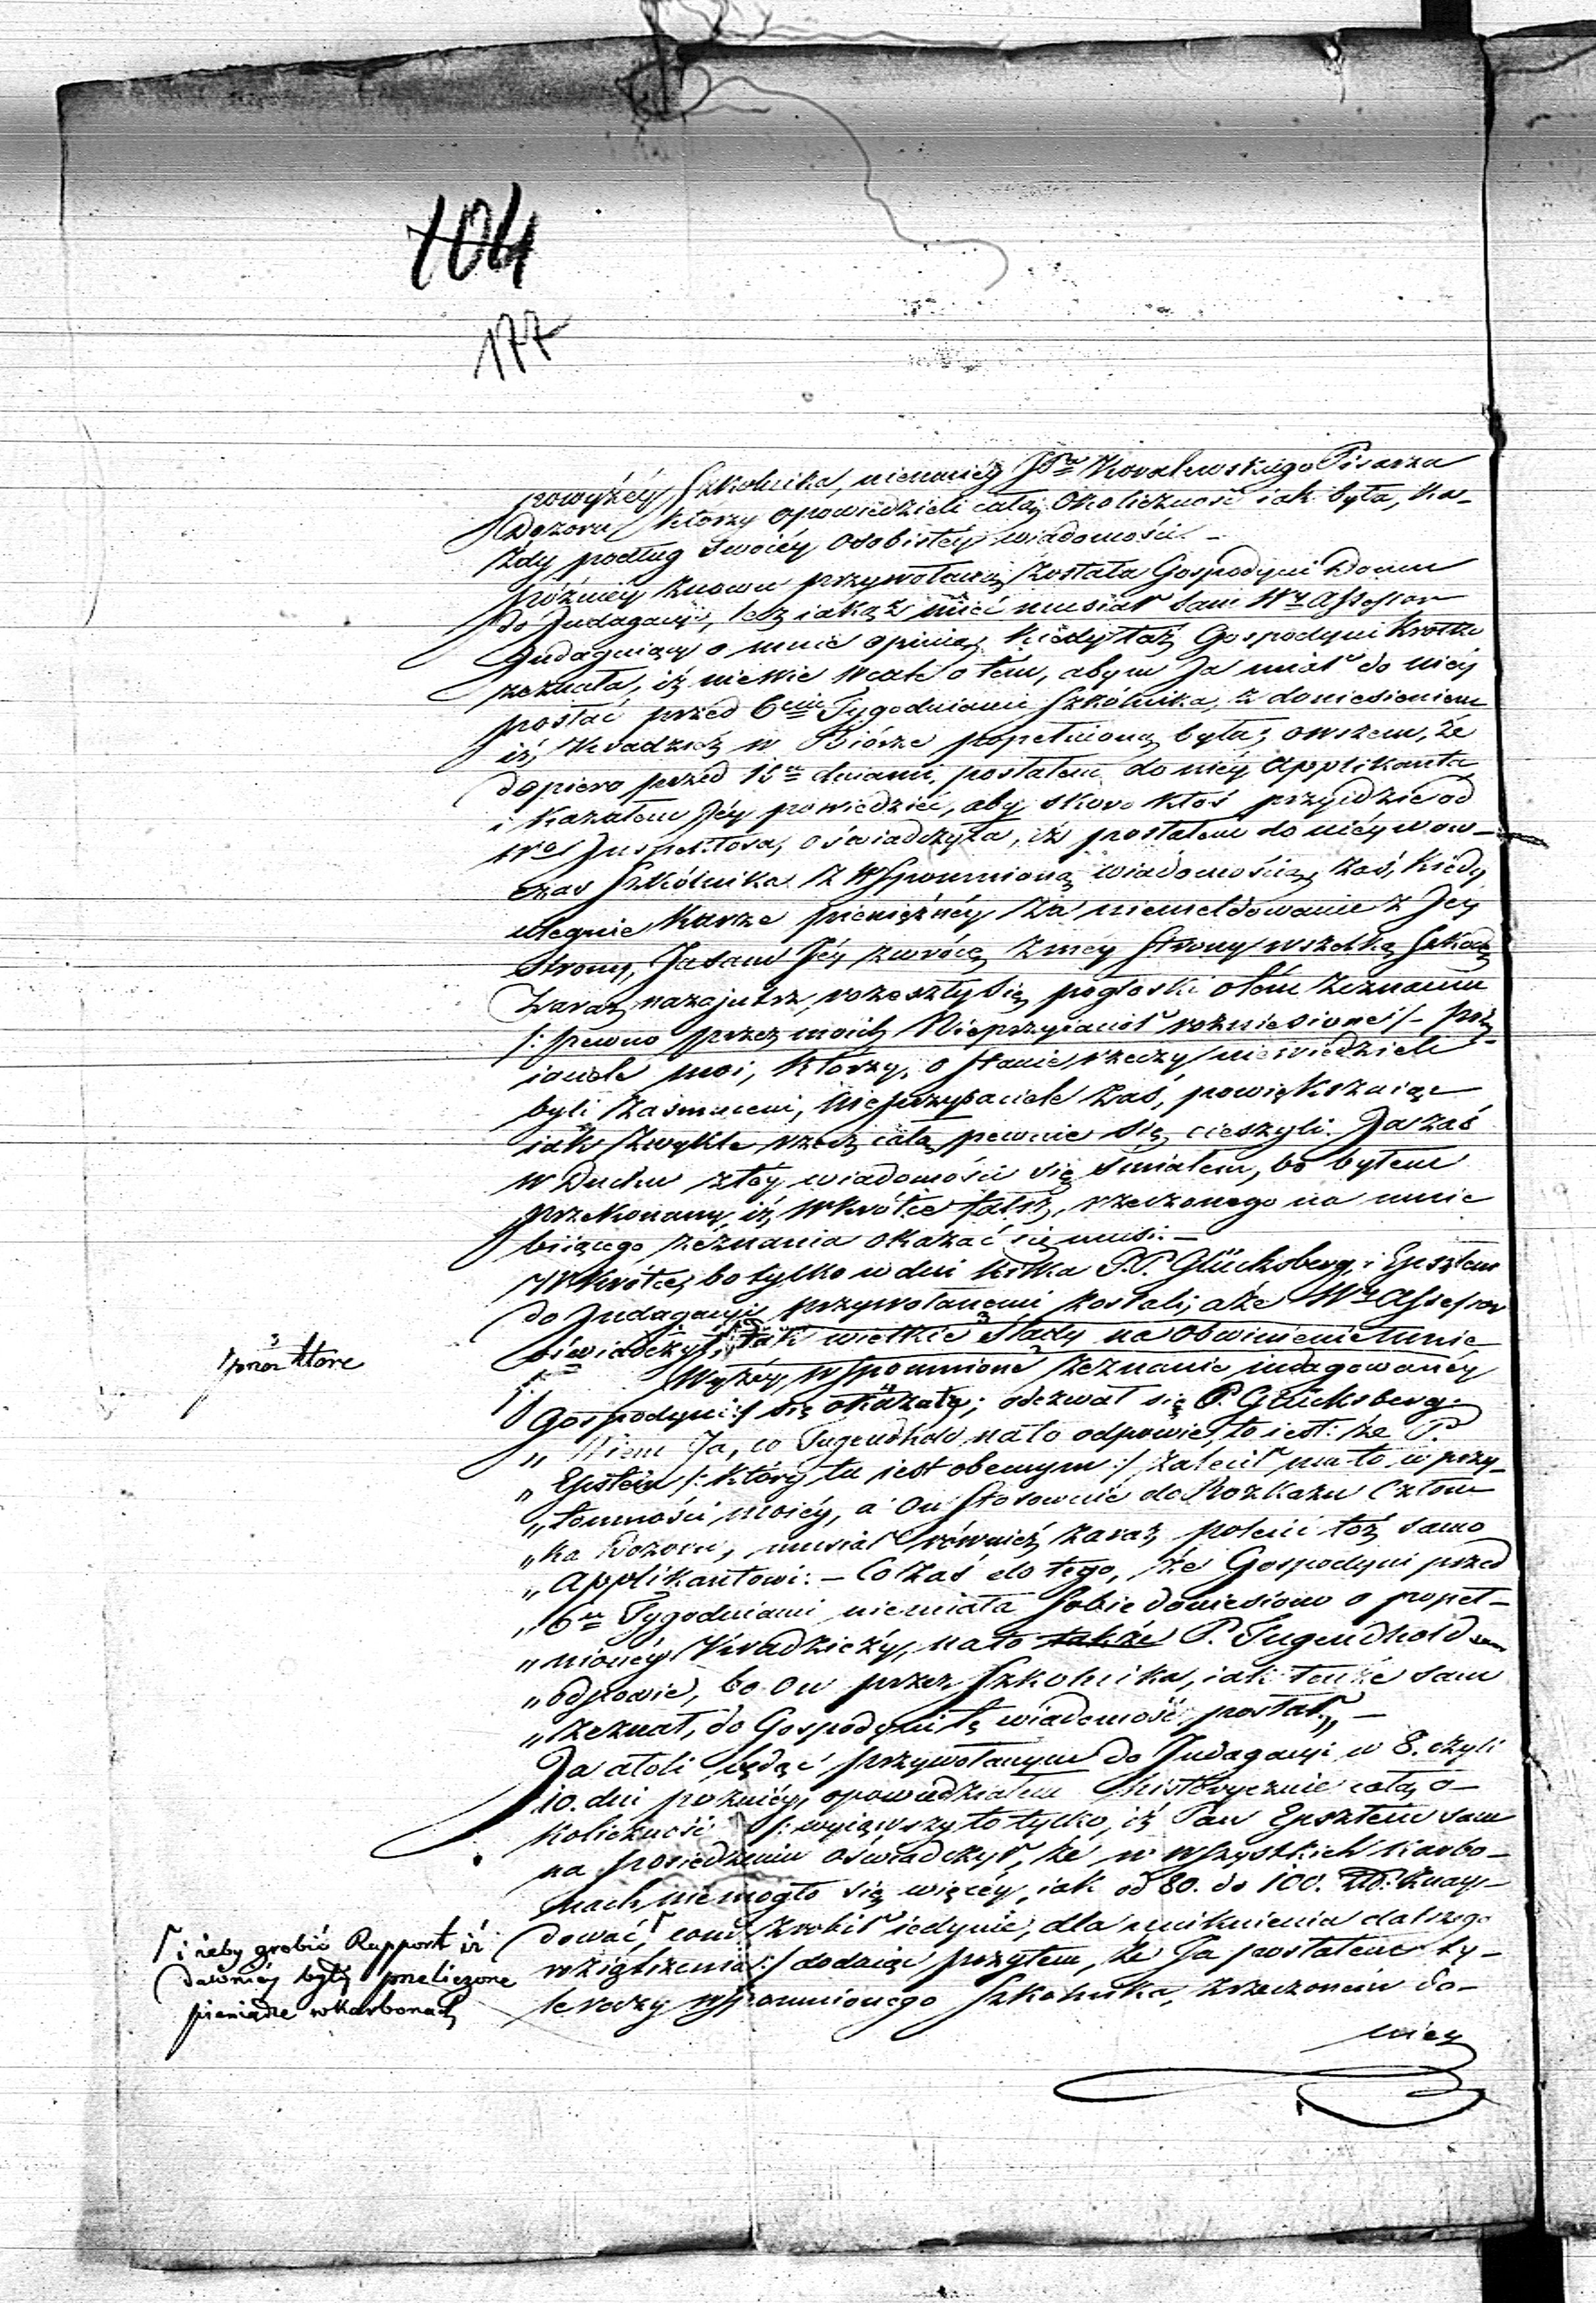 104
177
powyżéy Szkolnika, niemniéy JPa Kowalewskiego Pisarza
Dozoru, którzy opowiedzieli całą Okoliczność iak była, ka-
żdy podług swoiéy osobistéy wiadomości. –
Późniéy znowu przywołaną została Gospodyni Domu
do Jndagacyi, lecz iakąż mieć musiał sam Wy Assessor
Jndaguiący o mnie opinią, kiedy taż Gospodyni krótko
zeznała, iż nie wie wcale o tém, abym Ja miał do niéy
posłać przed 6cią Tygodniami Szkólnika, z doniesieniem
iż, Kradzież w Biórze popełnioną była, owszem, że
dopiero przed 15u dniami, posłałem do niéy Applikanta
i kazałem Jéy powiedzieć, aby skoro ktoś przyidzie od
Wo Jnspektora, oświadczyła, iż posłałem do niéy wów-
czas Szkólnika z wspomnioną wiadomością, zaś, kiedy
ulegnie karze pieniężnéy za niemeldowanie z Jéy
strony, Ja sam Jéy zwrócę z méy strony wszelką szkodę
Zaraz nazajutrz, rozeszły się pogłoski o tém zeznaniu
/: pewno przez moich Nieprzyiaciół rozniesione :/ – Przy-
iaciele moi, którzy, o stanie rzeczy nie wiedzieli
byli zasmuceni, nieprzyiaciele zaś, powiększaiąc
iak zwykle rzecz całą, pewnie się cieszyli. Ja zaś
w Duchu z téy wiadomości się śmiałem, bo byłem
przekonany, iż wkrótce fałsz, rzeczonego na mnie
biiącego zeznania okazać się musi. –
Wkrótce, bo tylko w dni kilka P.P. Glücksberg, i Epsztein
do Jndagacyi przywołanemi zostali, a że Wy Assessor
oświadczył, iż tak wielkie ślady na obwinienie mnie
3 przez które
/: Wyżéy wspomnione zeznanie indagowanéy
Gospodyni :/ się okazały; odezwał się P. Glücksberg:
„ Wiem Ja, co Tugendhold na to odpowie, to iest: że P.
„ Epstein /: który tu iest obecnym :/ zalecił mu to w przy-
„ tomności moiéy, a On stosownie do Rozkazu Człon-
„ ka Dozoru, musiał również zaraz polecić toż samo
„ Applikantowi: – Co zaś do tego, że Gospodyni przed
„ 6u Tygodniami nie miała sobie doniesiono o popeł-
„ nionéy Kradzieży, na to także P. Tugendhold
„ odpowie, bo On przez Szkolnika, iak tenże sam
„ zeznał, do Gospodyni tę wiadomość posłał„ –
Ja atoli będąc przywołanym do Jndagacyi w 8. czyli
10. dni późniéy, opowiedziałem historycznie całą o-
koliczność /: wyiąwszy to tylko, iż Pan Epsztein sam
na posiedzeniu oświadczył, że w wszystkich karbo-
nach nie mogło się więcéy, iak od 80. do 100. Zł: znay-
dować, com zrobił iedynie, dla uniknienia dalszego
i żeby zrobić Rapport iż
dawniéy były przeliczone
pieniądze w karbonach
rozgłszenia :/ dodaiąc przytem, że Ja posłałem ty-
le razy wspomnionego Szkolnika, z rzeczoném do-
niey